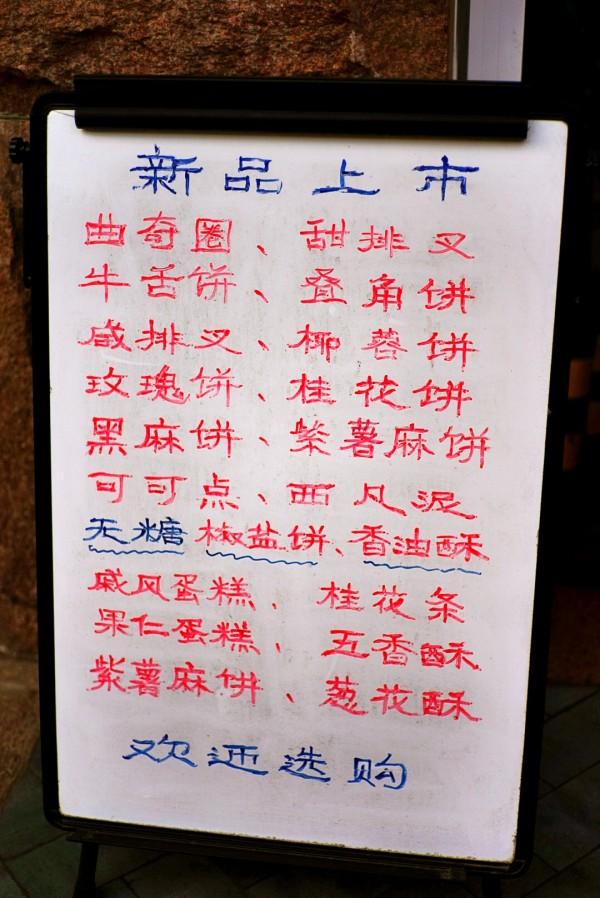 新品上市
曲奇圈、甜排叉
牛舌饼、叠角饼
咸排叉、椰蓉饼
玫瑰饼、桂花饼
黑麻饼、紫薯麻饼
可可点、西凡泥
无糖 椒盐饼、香油酥
戚风蛋糕、桂花条
果仁蛋糕、五香酥
紫薯麻饼、葱花酥
欢迎选购